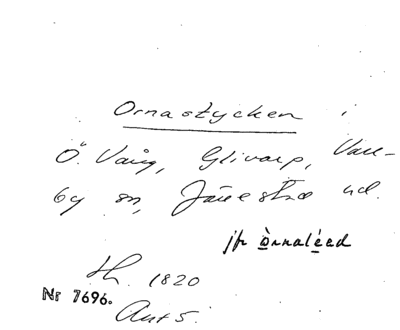 Ornastycken i
Ö. Vång, Glivarp, Van-
by sn, Järestad hd.
jfr òrnaléed
Lh. 1820
Nr 7696.
Ant 5.